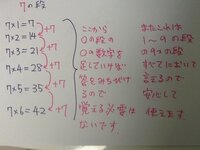 7の段
7×1=7
7×2=14
7×3=21
7×4=28
7×5=35
7×6=42
+7
+7
+7
+7
+7
ここから
の段の
の数字を
足していけば
答をみちびけ
るので
覚える必要は
ないです。
またこれは
1〜9の段
の9×の段
すべてにおいて
言えるので
安心して
使えます。